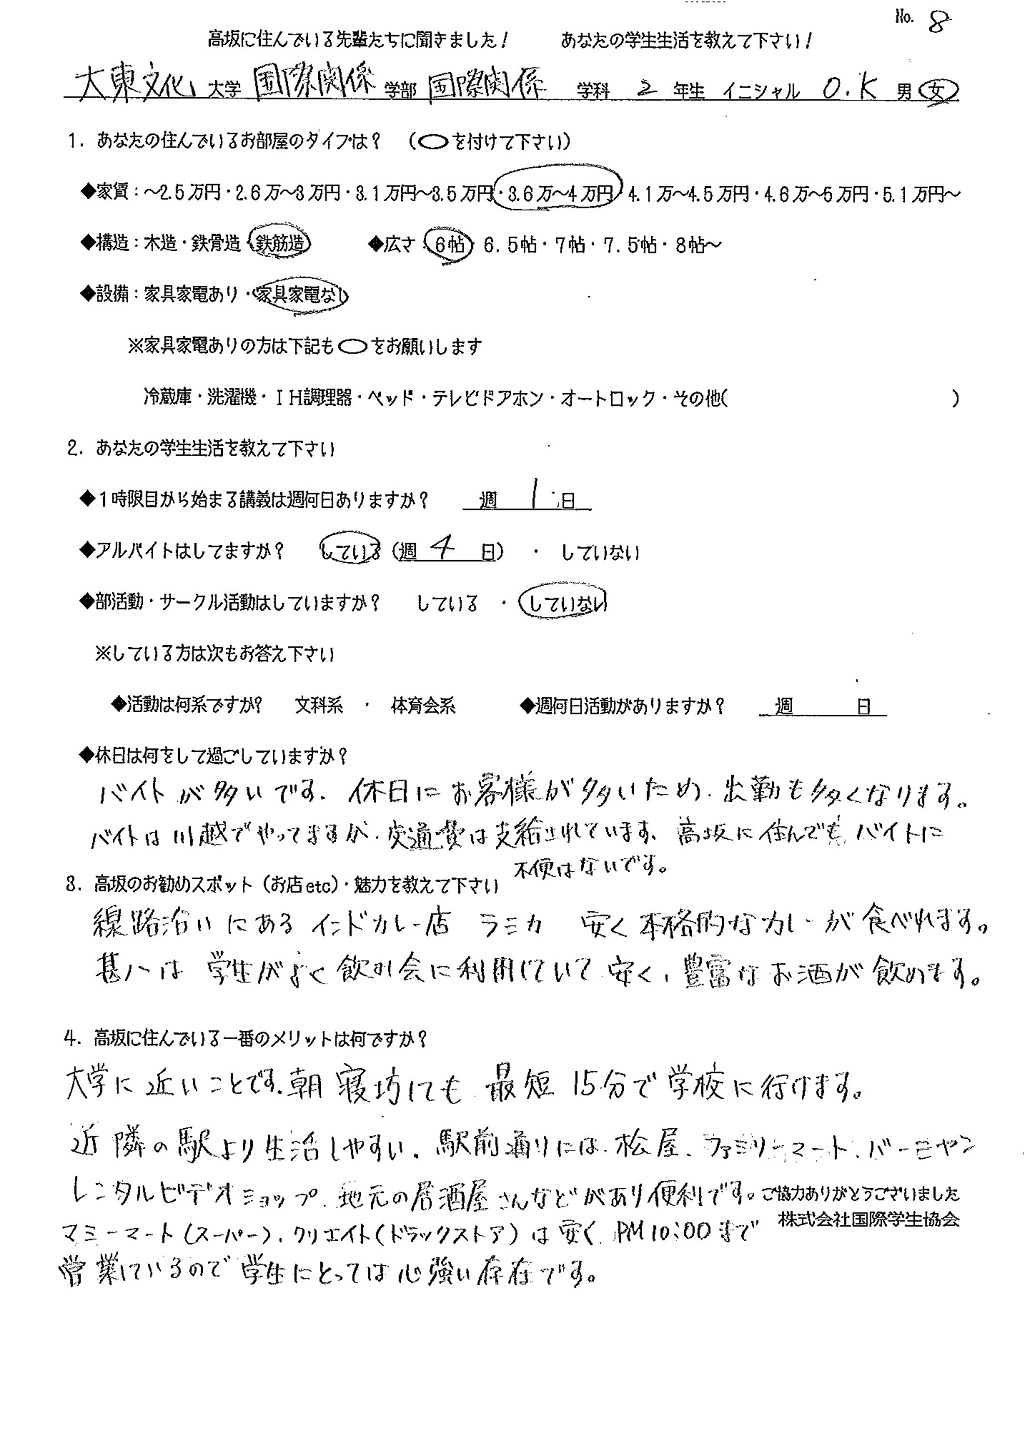 No. 8
高坂に住んでいる先輩たちに聞きました！　あなたの学生生活を教えて下さい！
大東文化 大学 国際関係 学部 国際関係 学科 2 年生 イニシャル O.K 男 女
1. あなたの住んでいるお部屋のタイプは？　（○を付けて下さい）
◆家賃：～2.5万円・2.6万～3万円・3.1万円～3.5万円・3.6万～4万円・4.1万～4.5万円・4.6万～5万円・5.1万円～
◆構造：木造・鉄骨造・鉄筋造　◆広さ：6帖・6.5帖・7帖・7.5帖・8帖～
◆設備：家具家電あり・家具家電なし
※家具家電ありの方は下記も○をお願いします
冷蔵庫・洗濯機・IH調理器・ベッド・テレビドアホン・オートロック・その他(　)
2. あなたの学生生活を教えて下さい
◆1時限目から始まる講義は週何日ありますか？　週 1 日
◆アルバイトはしてますか？　している（週 4 日）・　していない
◆部活動・サークル活動はしていますか？　している　・　していない
※している方は次もお答え下さい
◆活動は何系ですか？　文科系　・　体育会系　◆週何日活動がありますか？　週　日
◆休日は何をして過ごしていますか？
バイトが多いです．休日にお客様が多いため、出勤も多くなります。
バイトは川越でやってますが、交通費は支給されています、高坂に住んでてもバイトに
不便はないです。
3. 高坂のお勧めスポット（お店etc）・魅力を教えて下さい
線路沿いにあるインドカレー店 ラミカ 安く本格的なカレーが食べれます。
甚八は学生がよく飲み会に利用していて安く、豊富なお酒が飲めます。
4. 高坂に住んでいる一番のメリットは何ですか？
大学に近いことです．朝寝坊しても最短15分で学校に行けます。
近隣の駅より生活しやすい．駅前通りには、松屋、ファミリーマート、バーミヤン
レンタルビデオショップ、地元の居酒屋さんなどがあり便利です。
ご協力ありがとうございました
マミーマート（スーパー）、クリエイト（ドラックストア）は安く、PM10:00まで
株式会社国際学生協会
営業しているので学生にとっては心強い存在です。